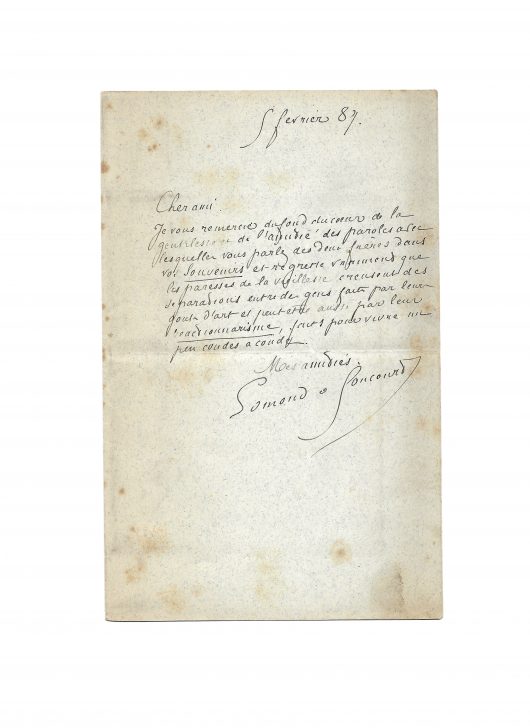 5 février 87.
Cher ami
Je vous remercie du fond du cœur de la
gentillesse et de l'amitié des paroles avec
lesquelles vous parlez des deux frères dans
vos Souvenirs et regrette vraiment que
les paresses de la vieillesse creusent des
séparations entre de gens faits par leurs
gouts d'art et peut etre aussi par leur
réactionnarisme, faits pour vivre un
peu coudes à coudes.
Mes amitiés.
Edmond de Goncourt